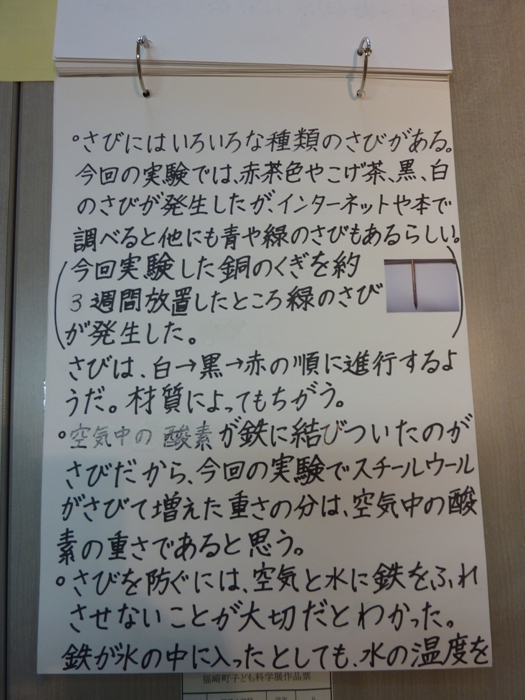 °さびにはいろいろな種類のさびがある。
今回の実験では、赤茶色やこげ茶、黒、白
のさびが発生したが、インターネットや本で
調べると他にも青や緑のさびもあるらしい。
(今回実験した銅のくぎを約
3週間放置したところ緑のさび
が発生した。)
さびは、白→黒→赤の順に進行するよ
うだ。材質によってもちがう。
°空気中の酸素が鉄に結びついたのが
さびだから、今回の実験でスチールウール
がさびて増えた重さの分は、空気中の酸
素の重さであると思う。
°さびを防ぐには、空気と水に鉄をふれ
させないことが大切だとわかった。
鉄が氷の中に入ったとしても、水の温度を
福崎町子ども科学展作品票